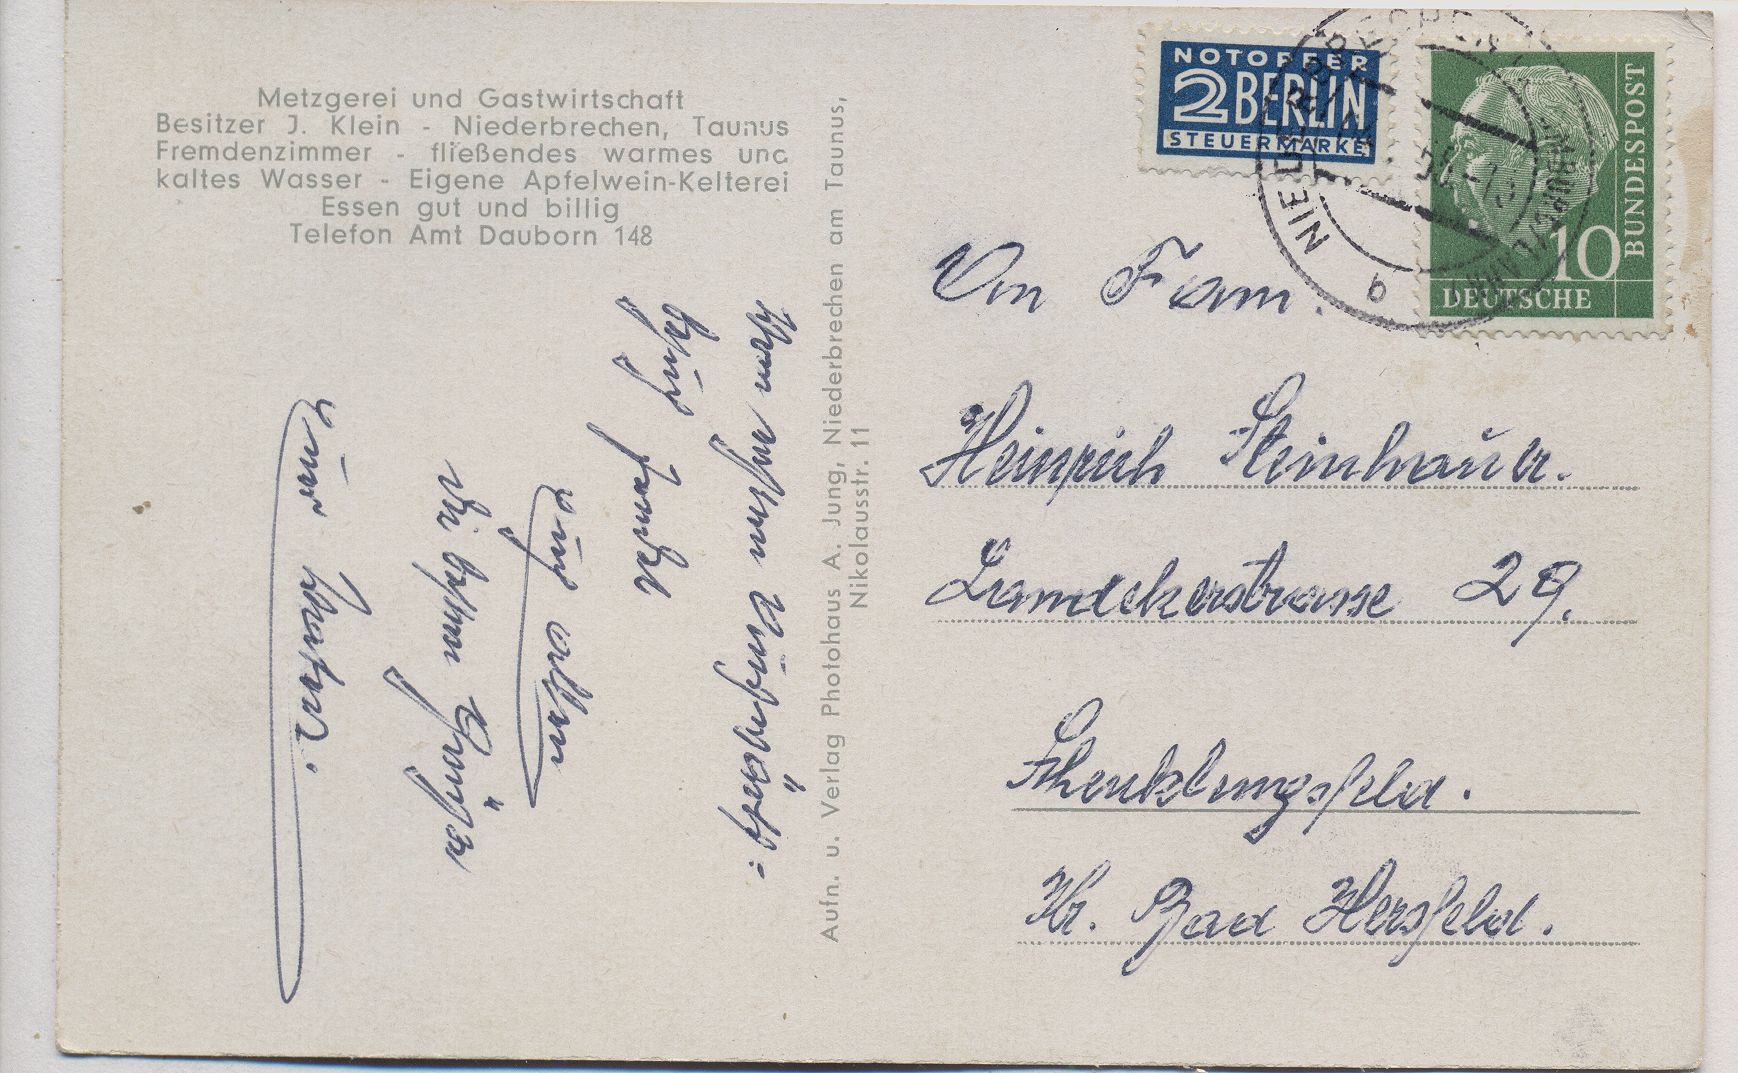 Metzgerei und Gastwirtschaft
Besitzer J. Klein - Niederbrechen, Taunus
Fremdenzimmer - fließendes warmes und
kaltes Wasser - Eigene Apfelwein-Kelterei
Essen gut und billig
Telefon Amt Dauborn 148
Aufn. u. Verlag Photohaus A. Jung, Niederbrechen am Taunus,
Nikolausstr. 11
sendet
Euch allen
die besten Grüße
Euer
NOTOPFER
2 BERLIN
STEUERMARKE
DEUTSCHE
BUNDESPOST
10
b
Fam.
Heinrich Steinhauer.
Landekerstrasse 29.
Schenklengsfeld.
Kr. Bad Hersfeld.